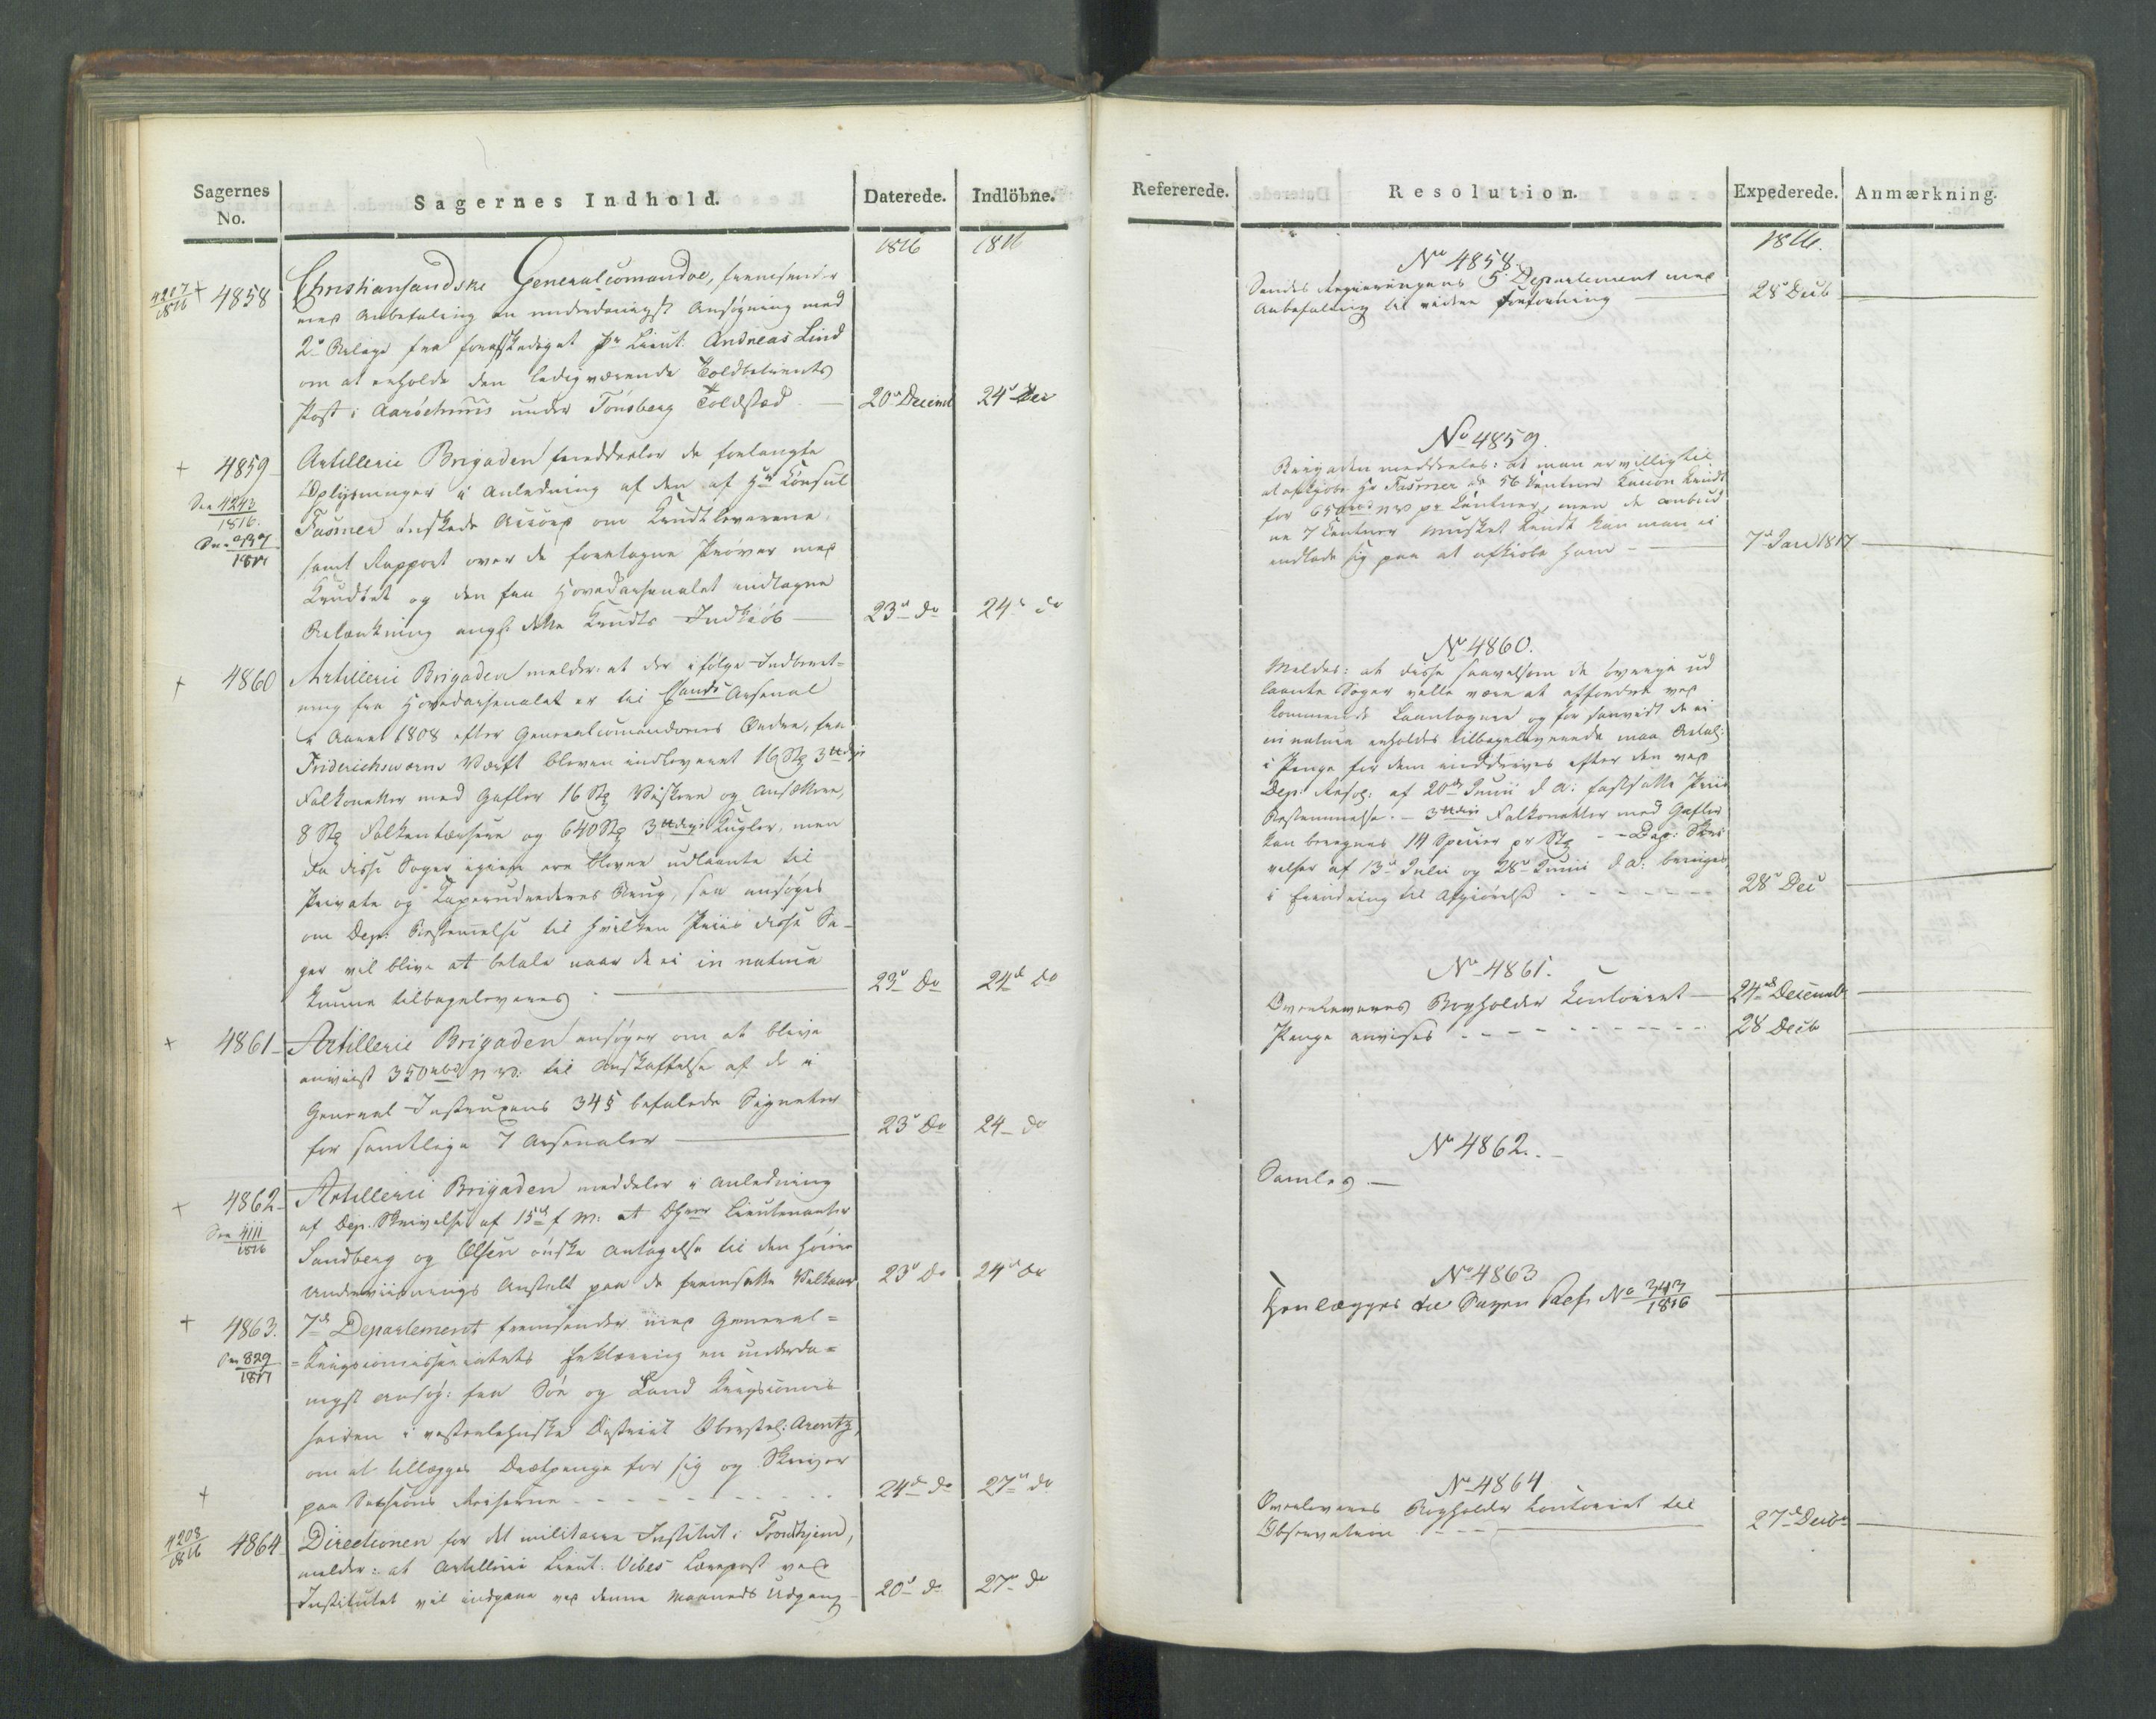 Sagernes No.
Sagernes Indhold.
Daterede.
Indlöbne.
1816
1816
4207/1816 + 4858
Christiansandske Generalcomandoe, fremsender
med Anbefaling en underdanigst Ansøgning med
2de Bilage fra forafskediget Pr Lieut. Andreas Lind
om at erholde den ledigværende Toldbetients
Post i Aaröchuus under Tönsberg Toldsted
20de Decemb
24de Dec
+ 4859
See 4243/1816.
Artillerie Brigaden meddeeler de forlangte
Oplysninger i Anledning af den af Hr Consul
Fasmer ønskede Accord om Krudtleverence
samt Rapport over de foretagne Prøver med
Krudtet og den fra Hovedarsenalet indtagne
Betænkning angl: dette Krudts Indkiöb
23de do
24de do
+ 4860
Artillerie Brigaden melder: at der ifølge Indberet=
ning fra Hovedarsenalet er til Xsands Arsenal
i Aaret 1808 efter Generalcomandoens Ordre, fra
Friderichsværns Værft bleven indleveret 16 Stk 3 tt dige
Falkonetter med Gafler 16 Stk Viskere og Ansættere,
8 Stk Falkentasker og 640 Stk 3 tt digs Kugler, men
da disse Sager igien ere blevne udlaante til
Private og Kaperudrederes Brug, saa ansøges
om Dep: Bestemelse til hvilken Priis disse Sa-
ger vil blive at betale naar de ei in natura
kunne tilbageleveres
23de do
24de do
+ 4861
Artillerie Brigaden ansøger om at blive
anviist 350 rbd n. v. til Anskaffelse af de i
General Instruxens 34 § befalede Signeter
for samtlige 7 Arsenaler
23de do
24 do
+ 4862
See 4111/1816
Artillerie Brigaden meddeler i Anledning
af Dep. Skrivelse af 15de f. M: at Dhrr Lieutenanter
Sandberg og Olsen ønske Antagelse til den høiere
Underviisnings Anstalt paa de fremsatte Vilkaar
23de do
24de do
+ 4863.
See 829/1817
7de Departement fremsender med General=
=Krigscommissariatets Erklæring en underda=
nigst Ansøg: fra Söe og Land Krigscommis
sairen i vesterlehnske District Oberstl: Arentz,
om at tillægges Diætpenge for sig og Skriver
paa Sessions Reiserne
24de do
27de do
+
4208/1816 4864
Directionen for det militaire Institut i Trondhjem,
melder: at Artillerie Lieut. Vibes Lærepost ved
Institutet vil indgaae ved denne Maaneds Udgang
20de do
27de do
Refererede.
Resolution.
Expederede.
Anmærkning.
1816.
No 4858.
Sendes Regieringens 5 Departement med
Anbefaling til videre Foranstaltning
28de Decb
No 4859.
Brigaden meddeeles: at man er villig til
at afkjøbe Hr Fasmer de 56 Centner Canon Krudt
for 65 rbd n. v. pr Centner, men de anbud
ne 7 Centner Musket Krudt kan man ei
indlade sig paa at afkiøbe ham
7de Jan 1817
No 4860.
Meldes: at disse saavelsom de øvrige ud
laante Sager ville være at affordre ved
kommende Laantagere og for saavidt de ei
in natura erholdes tilbageleverede maa Betal:
i Penge for dem inddrives efter den ved
Dep. Resol: af 20de Junii d. A: fastsatte Priis
Bestemmelse. - 3 tt dige Falkonetter med Gafler
kan beregnes 14 Specier pr Stk - Dep: Skri
velser af 13de Julii og 28de Junii d. A: bringes
i Erindring til Afgiørelse
28de Dec
No 4861.
Overleveres Bogholder Contoiret
24de Decemb
Penge anvises
28 Decb
No 4862.
Samles
No 4863
Henlægges til Sagen Ref. No 343/1816
No 4864
Overleveres Bogholder Contoiret til
Observation
27de Decbr